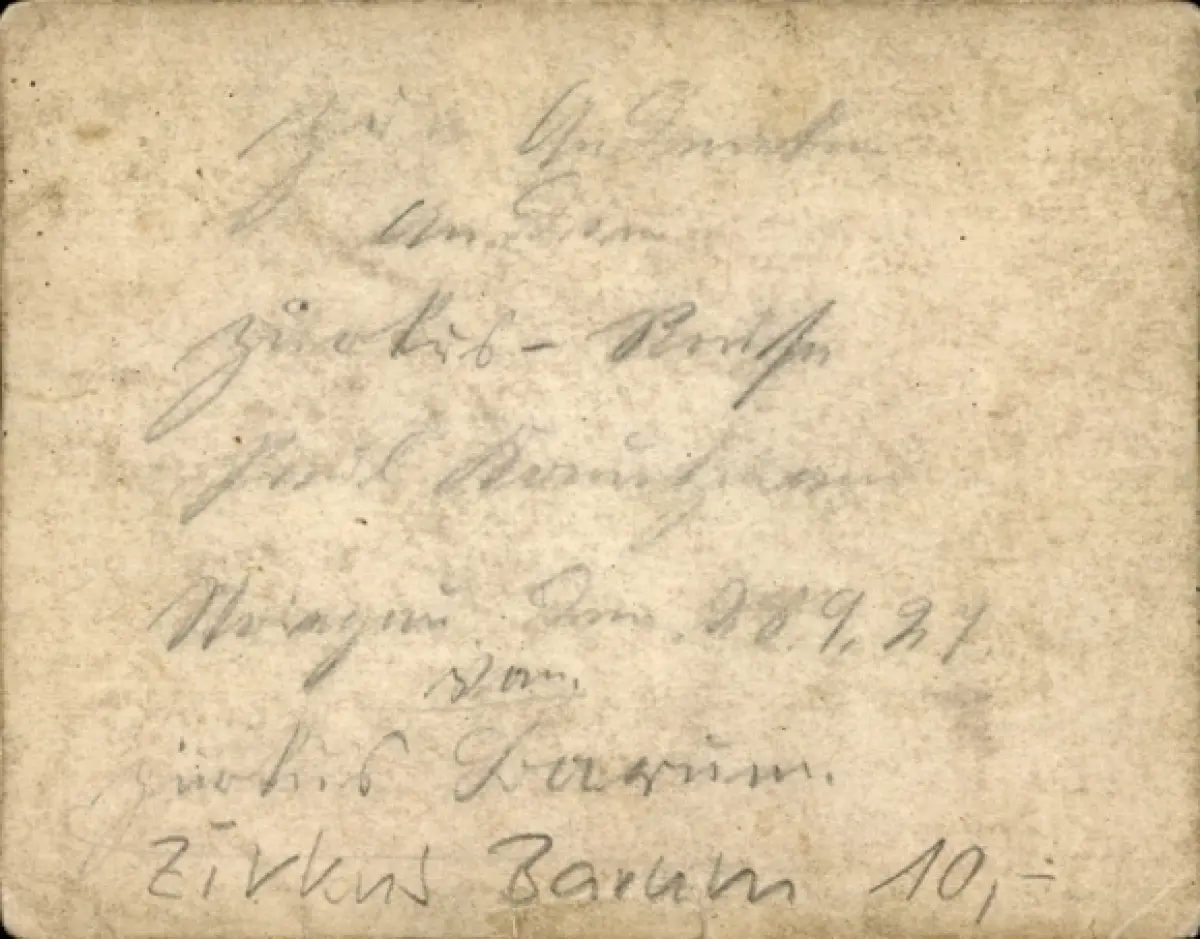 Zur Andenken
an den
Zirkus-Reise
Striegau den 28.9.27.
von
Zirkus Barum.
Zirkus Barum 10,-